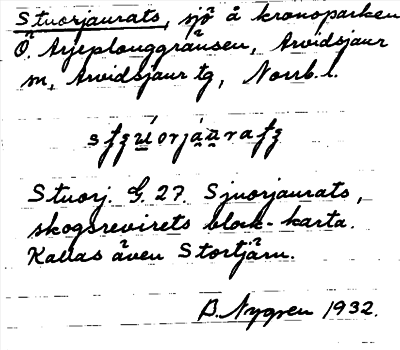 Stuorjaurats, sjö å kronoparken
Ö. Arjeplouggränsen, Arvidsjaur
m, Arvidsjaur tg, Norrb. l.
Stuorj. G. 27. Sjuorjaurats,
skogsrevirets block-karta.
Kallas även Stortjärn.
B. Nygren 1932.